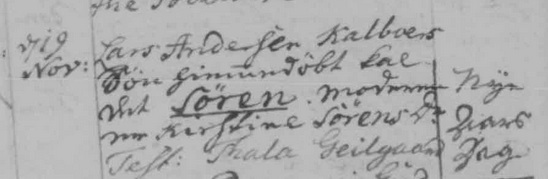 d 19 Lars Andersen Kalboers
Nov: Sön hiemmedöbt kal
det Sören. Moderen
er Kirstine Sörens Dr
Test: Thala Geilgaard
Nye
Aars
Dag